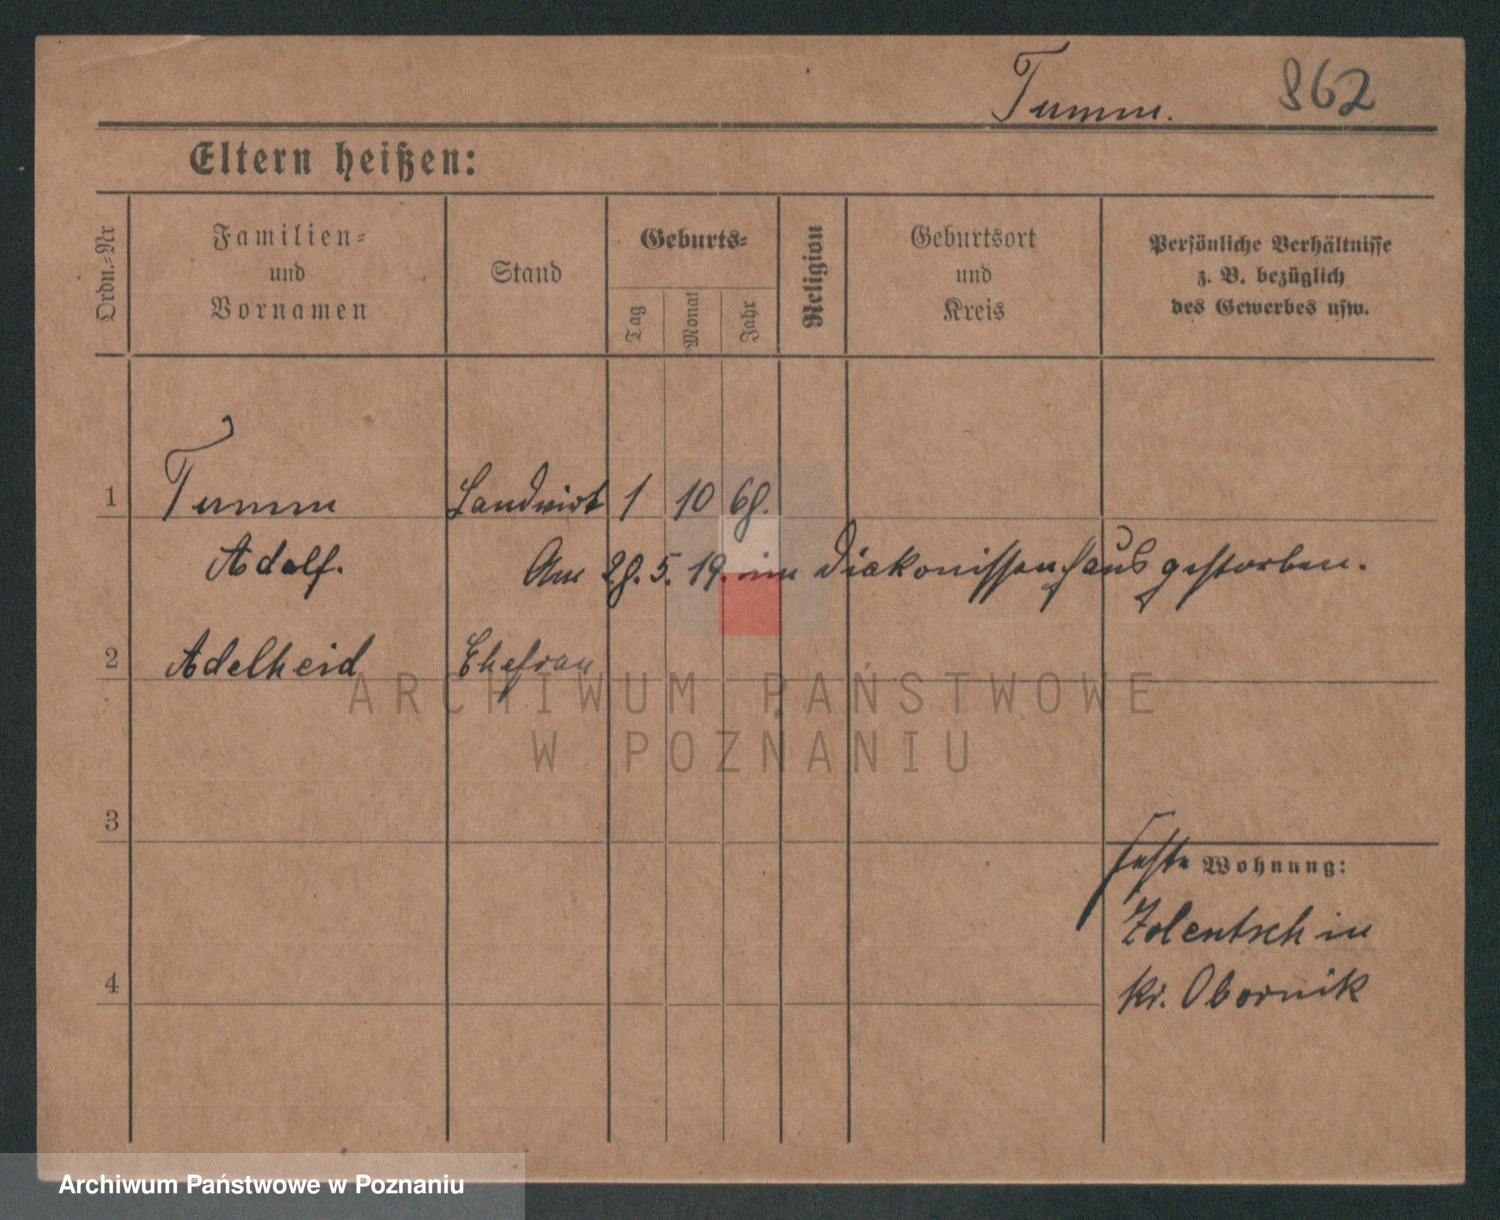 Tumm. 862
Eltern heißen:
Ordn.-Nr
Familien-
und
Vornamen
Stand
Geburts-
Tag
Monat
Jahr
Religion
Geburtsort
und
Kreis
Persönliche Verhältnisse
z. B. bezüglich
des Gewerbes usw.
1 Tumm Landwirt 1 10 68.
Adolf. Am 28. 5. 19. im Diakonissenhaus gestorben.
2 Adelheid Ehefrau
ARCHIWUM PAŃSTWOWE
W POZNANIU
3
feste Wohnung:
Zolentschin
4
Kr. Obornik
Archiwum Państwowe w Poznaniu